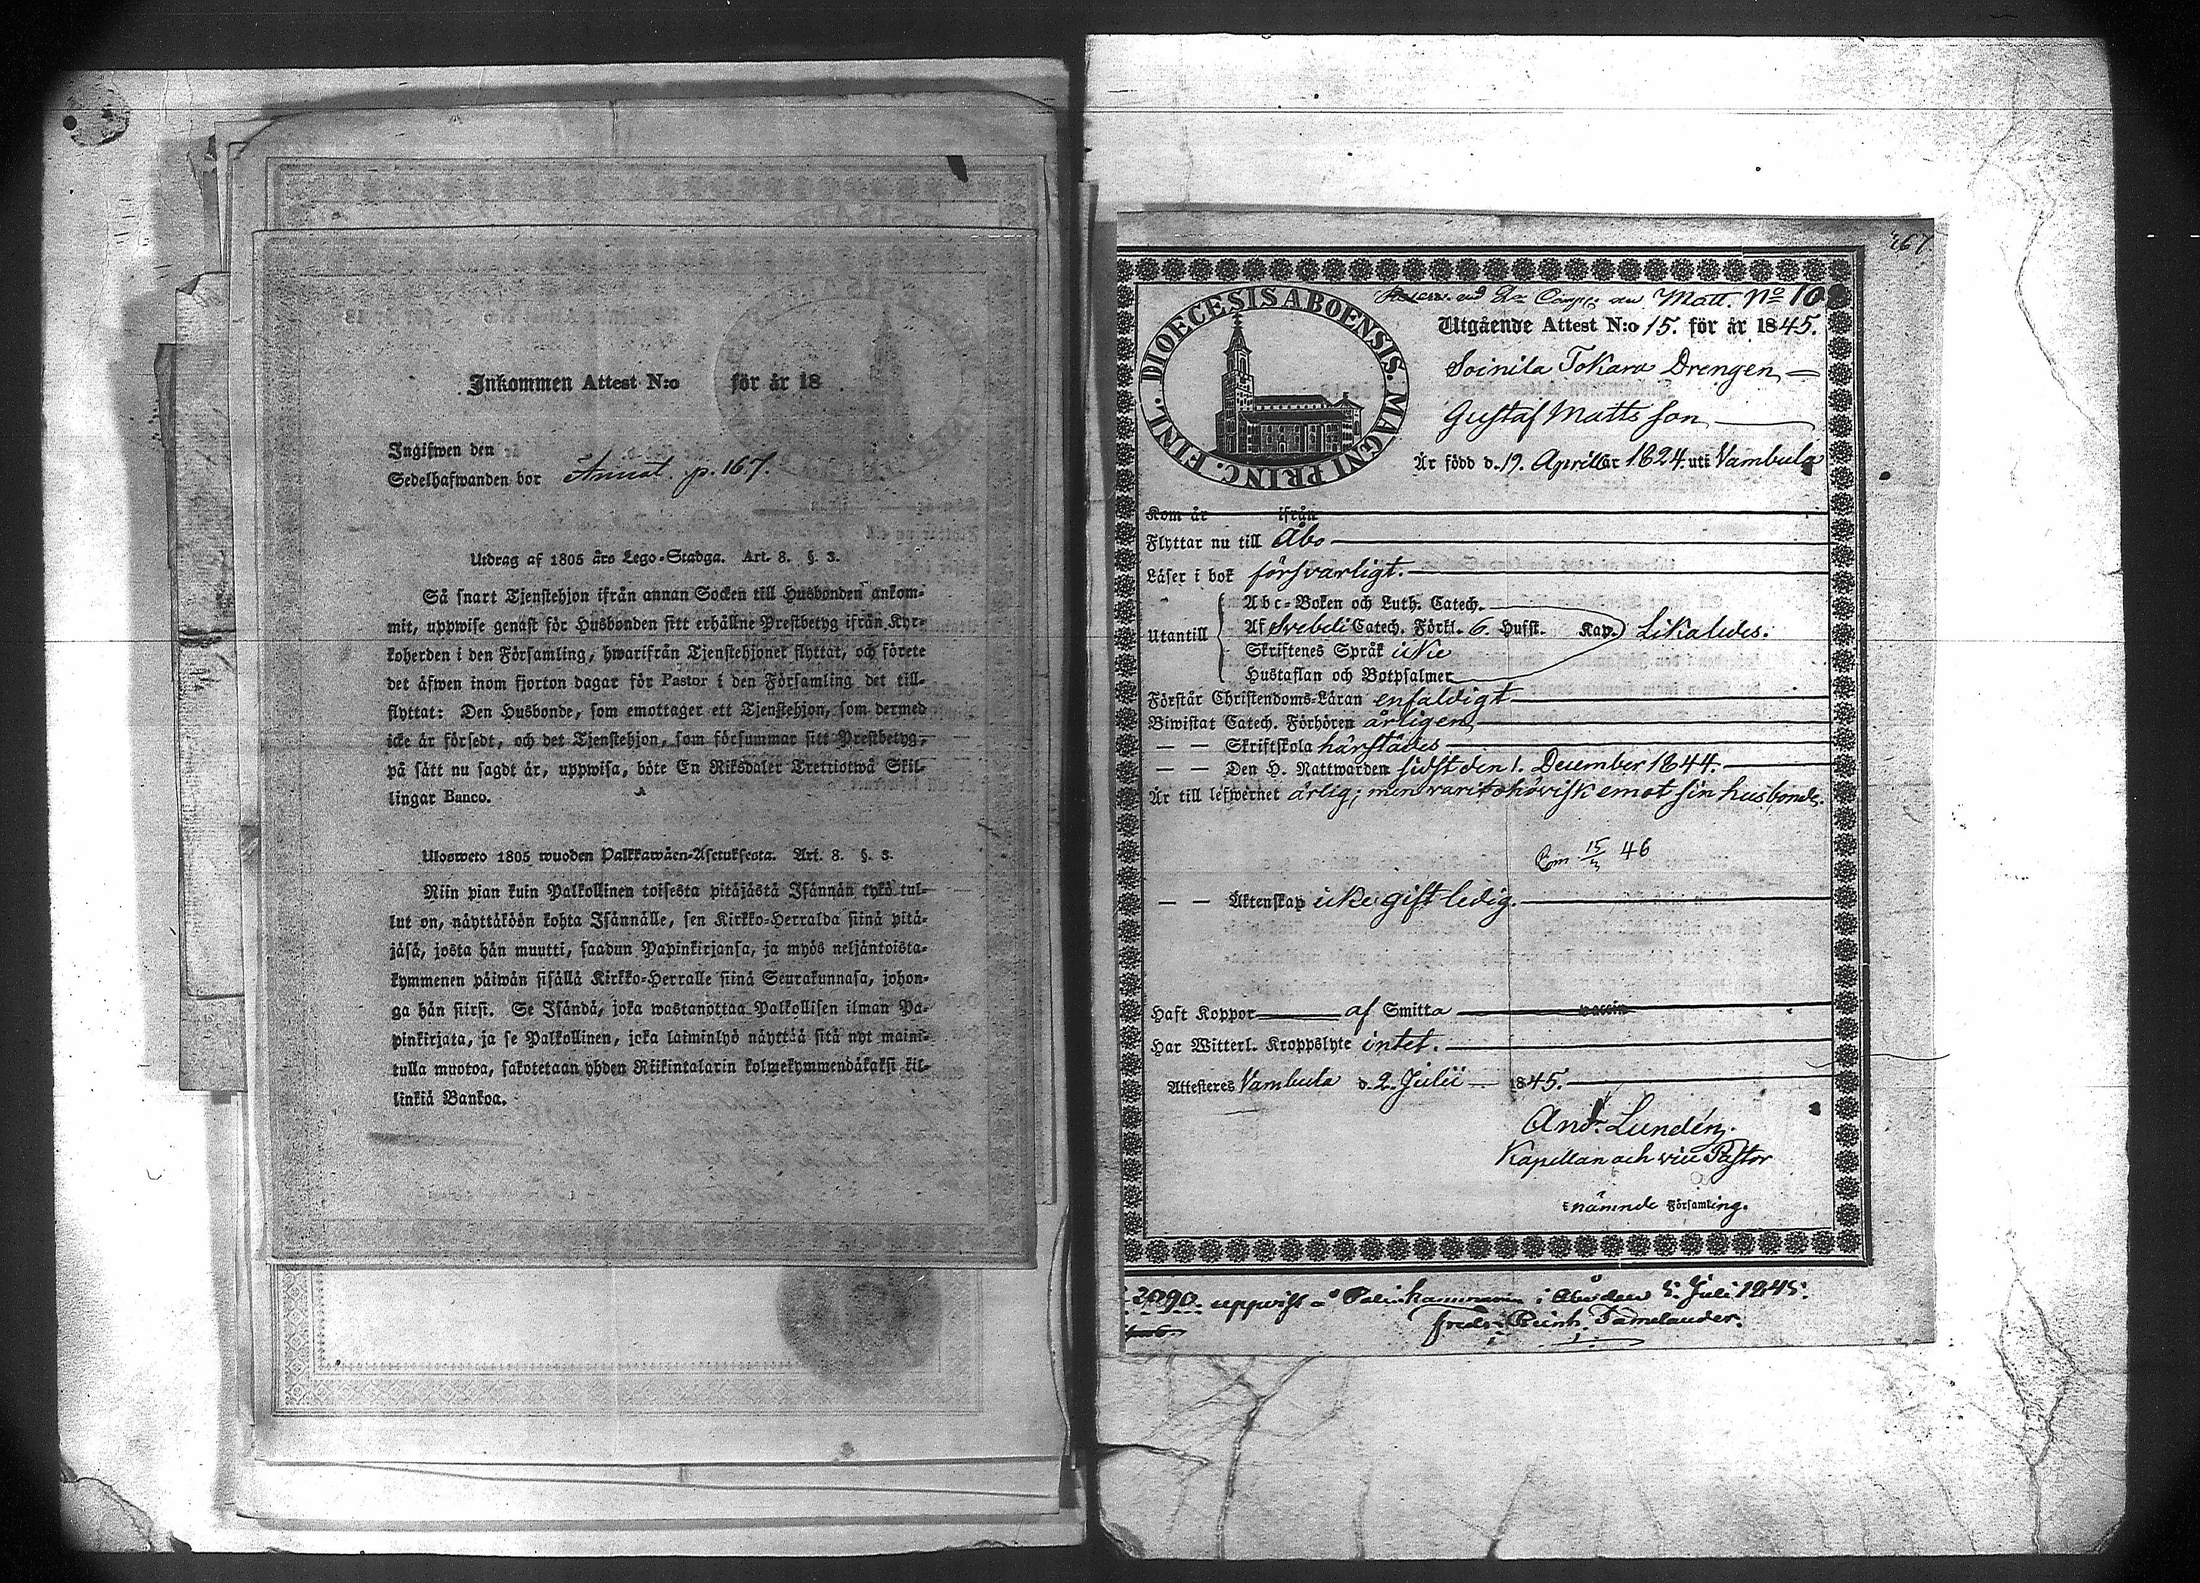 Inkommen Attest N:o för år 18
Ingifwen den
Sedelhafwanden bor Annot. p. 167.
Utdrag af 1805 års Lego-Stadga. Art. 8. §. 3.
Så snart Tjenstehjon ifrån annan Socken till Husbonden ankom-
mit, uppwise genast för Husbonden sitt erhållne Prestbetyg ifrån Kyr-
koherden i den Församling, hwarifrån Tjenstehjonet flyttat, och förete
det äfwen inom fjorton dagar för Pastor i den Församling det till-
flyttat: Den Husbonde, som emottager ett Tjenstehjon, som dermed
icke är försedt, och det Tjenstehjon, som försummar sitt Prestbetyg,
på sätt nu sagdt är, uppwisa, böte En Riksdaler Tretriotwå Skil-
lingar Banco.
Ulosweto 1805 wuoden Palkkawäen-Asetuksesta. Art. 8. §. 3.
Niin pian kuin Palkollinen toisesta pitäjästä Isännän tykö tul-
lut on, näyttäköön kohta Isännälle, sen Kirkko-Herralda siinä pitä-
jäsä, josta hän muutti, saadun Papinkirjansa, ja myös neljäntoista-
kymmenen päiwän sisällä Kirkko-Herralle siinä Seurakunnasa, johon-
ga hän siirsi. Se Isändä, joka wastanottaa Palkollisen ilman Pa-
pinkirjata, ja se Palkollinen, joka laiminlyö näyttää sitä nyt maini-
tulla muotoa, sakotetaan yhden Riikintalarin kolmekymmendäkaksi kil-
linkiä Bankoa.
167
Matt. No 10
DIOECESIS ABOENSIS. MAGNI PRINC. FINL.
Utgående Attest N:o 15. för år 1845.
Soinila Tokara Drengen
Gustaf Matts son
Är född d. 19. April år 1824. uti Vambula
Kom år ifrån
Flyttar nu till Åbo
Läser i bok försvarligt.
Utantill
Abc-Boken och Luth. Catech.
Af Svebeli Catech. Förkl. 6. Hufst. Kap. Likaledes.
Skriftenes Språk icke
Hustaflan och Botpsalmer
Förstår Christendoms-Läran enfaldigt
Biwistat Catech. Förhören årligen
— — Skriftskola härstädes
— — Den H. Nattwarden sidst den 1. December 1844.
Är till lefwernet ärlig; men varit ohövisk emot sin husbonde.
15/3 46
— — Äktenskap icke gift ledig.
Haft Koppor af Smitta vaccin
Har Witterl. Kroppslyte intet.
Attesteres Vambula d. 2. Julii 1845.
And. Lundén.
Kapellan och vice Pastor
i nämnde Församling.
2090. uppvist å Poliskammaren i Åbo den 5. Juli 1845.
Fredr. Reinh. Tamelander.